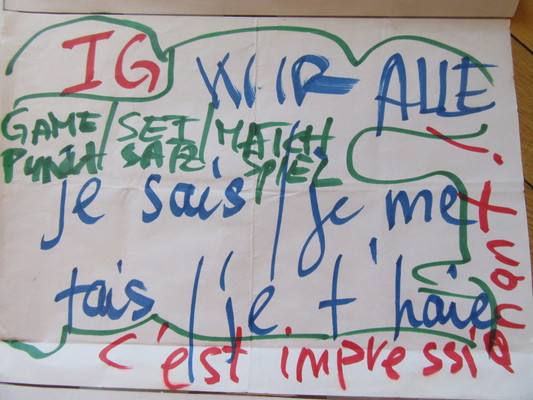 IG WIR ALLE
GAME / SET / MATCH
PUNKT SATZ SPIEL
je sais / je me
tais / je t'haie
c'est impressionant !